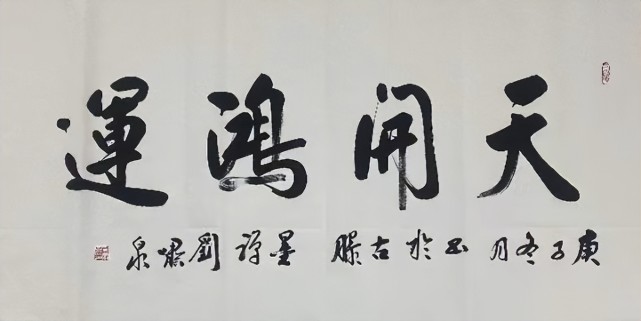 天開鴻運
庚子冬月書於古滕 墨譚 劉啸泉